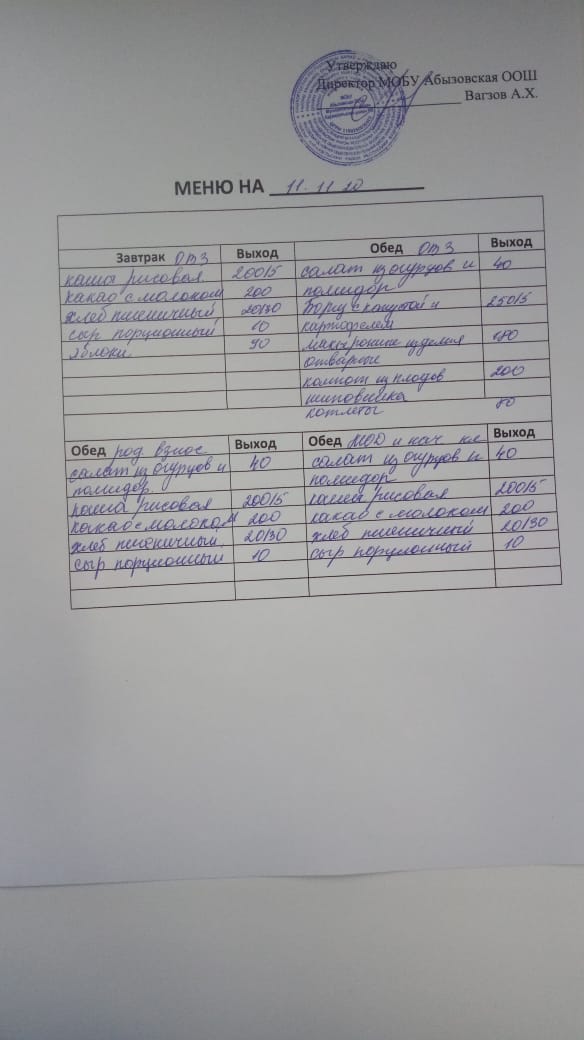 Утверждаю
Директор МОБУ Абызовская ООШ
Вагзов А.Х.
МЕНЮ НА 11.11.20
Завтрак ОТЗ Выход Обед ОТЗ Выход
каша рисовая 200/5 салат из огурцов и 40
какао с молоком 200 помидор
хлеб пшеничный 20/30 борщ с капустой и 250/5
сыр порционный 10 картофелем
яблоки 90 макаронные изделия 180
отварные
компот из плодов 200
шиповника
котлеты 80
Обед род взнос Выход Обед МОД и нач кл Выход
салат из огурцов и 40 салат из огурцов и 40
помидор помидор
каша рисовая 200/5 каша рисовая 200/5
какао с молоком 200 какао с молоком 200
хлеб пшеничный 20/30 хлеб пшеничный 20/30
сыр порционный 10 сыр порционный 10